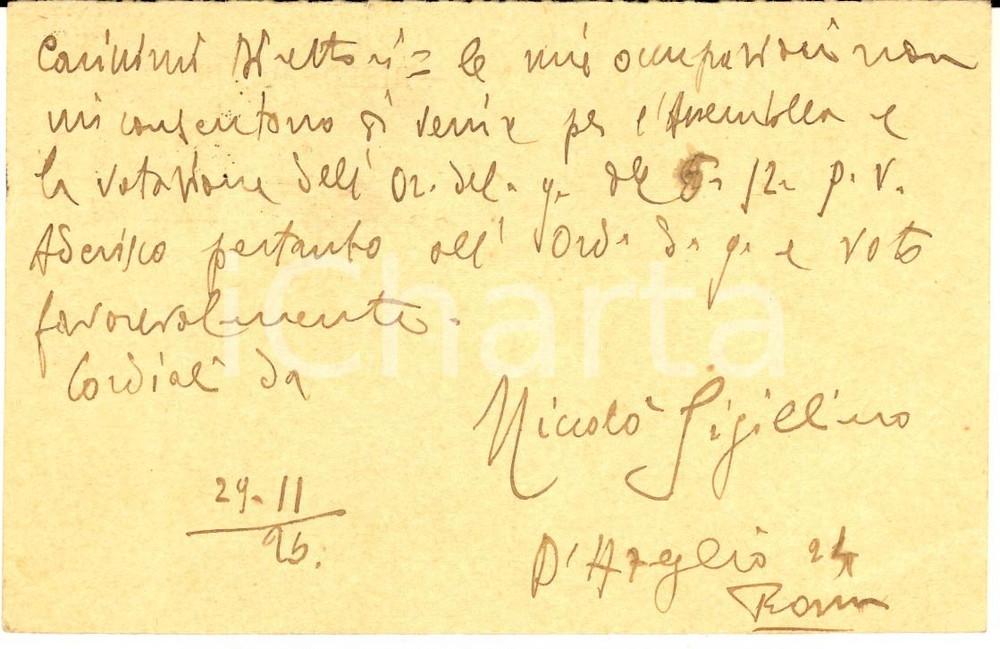 Carissimi Direttori = le mie occupazioni non
mi consentono di venire per l'Assemblea e
la votazione dell' Or. del. g. del 5. 12. p. v.
Aderisco pertanto all' Ord. d. g. e voto
favorevolmente.
Cordiali da
Niccolò Sigillino
29.11
26.
D'Azeglio 24
Roma
iCharta